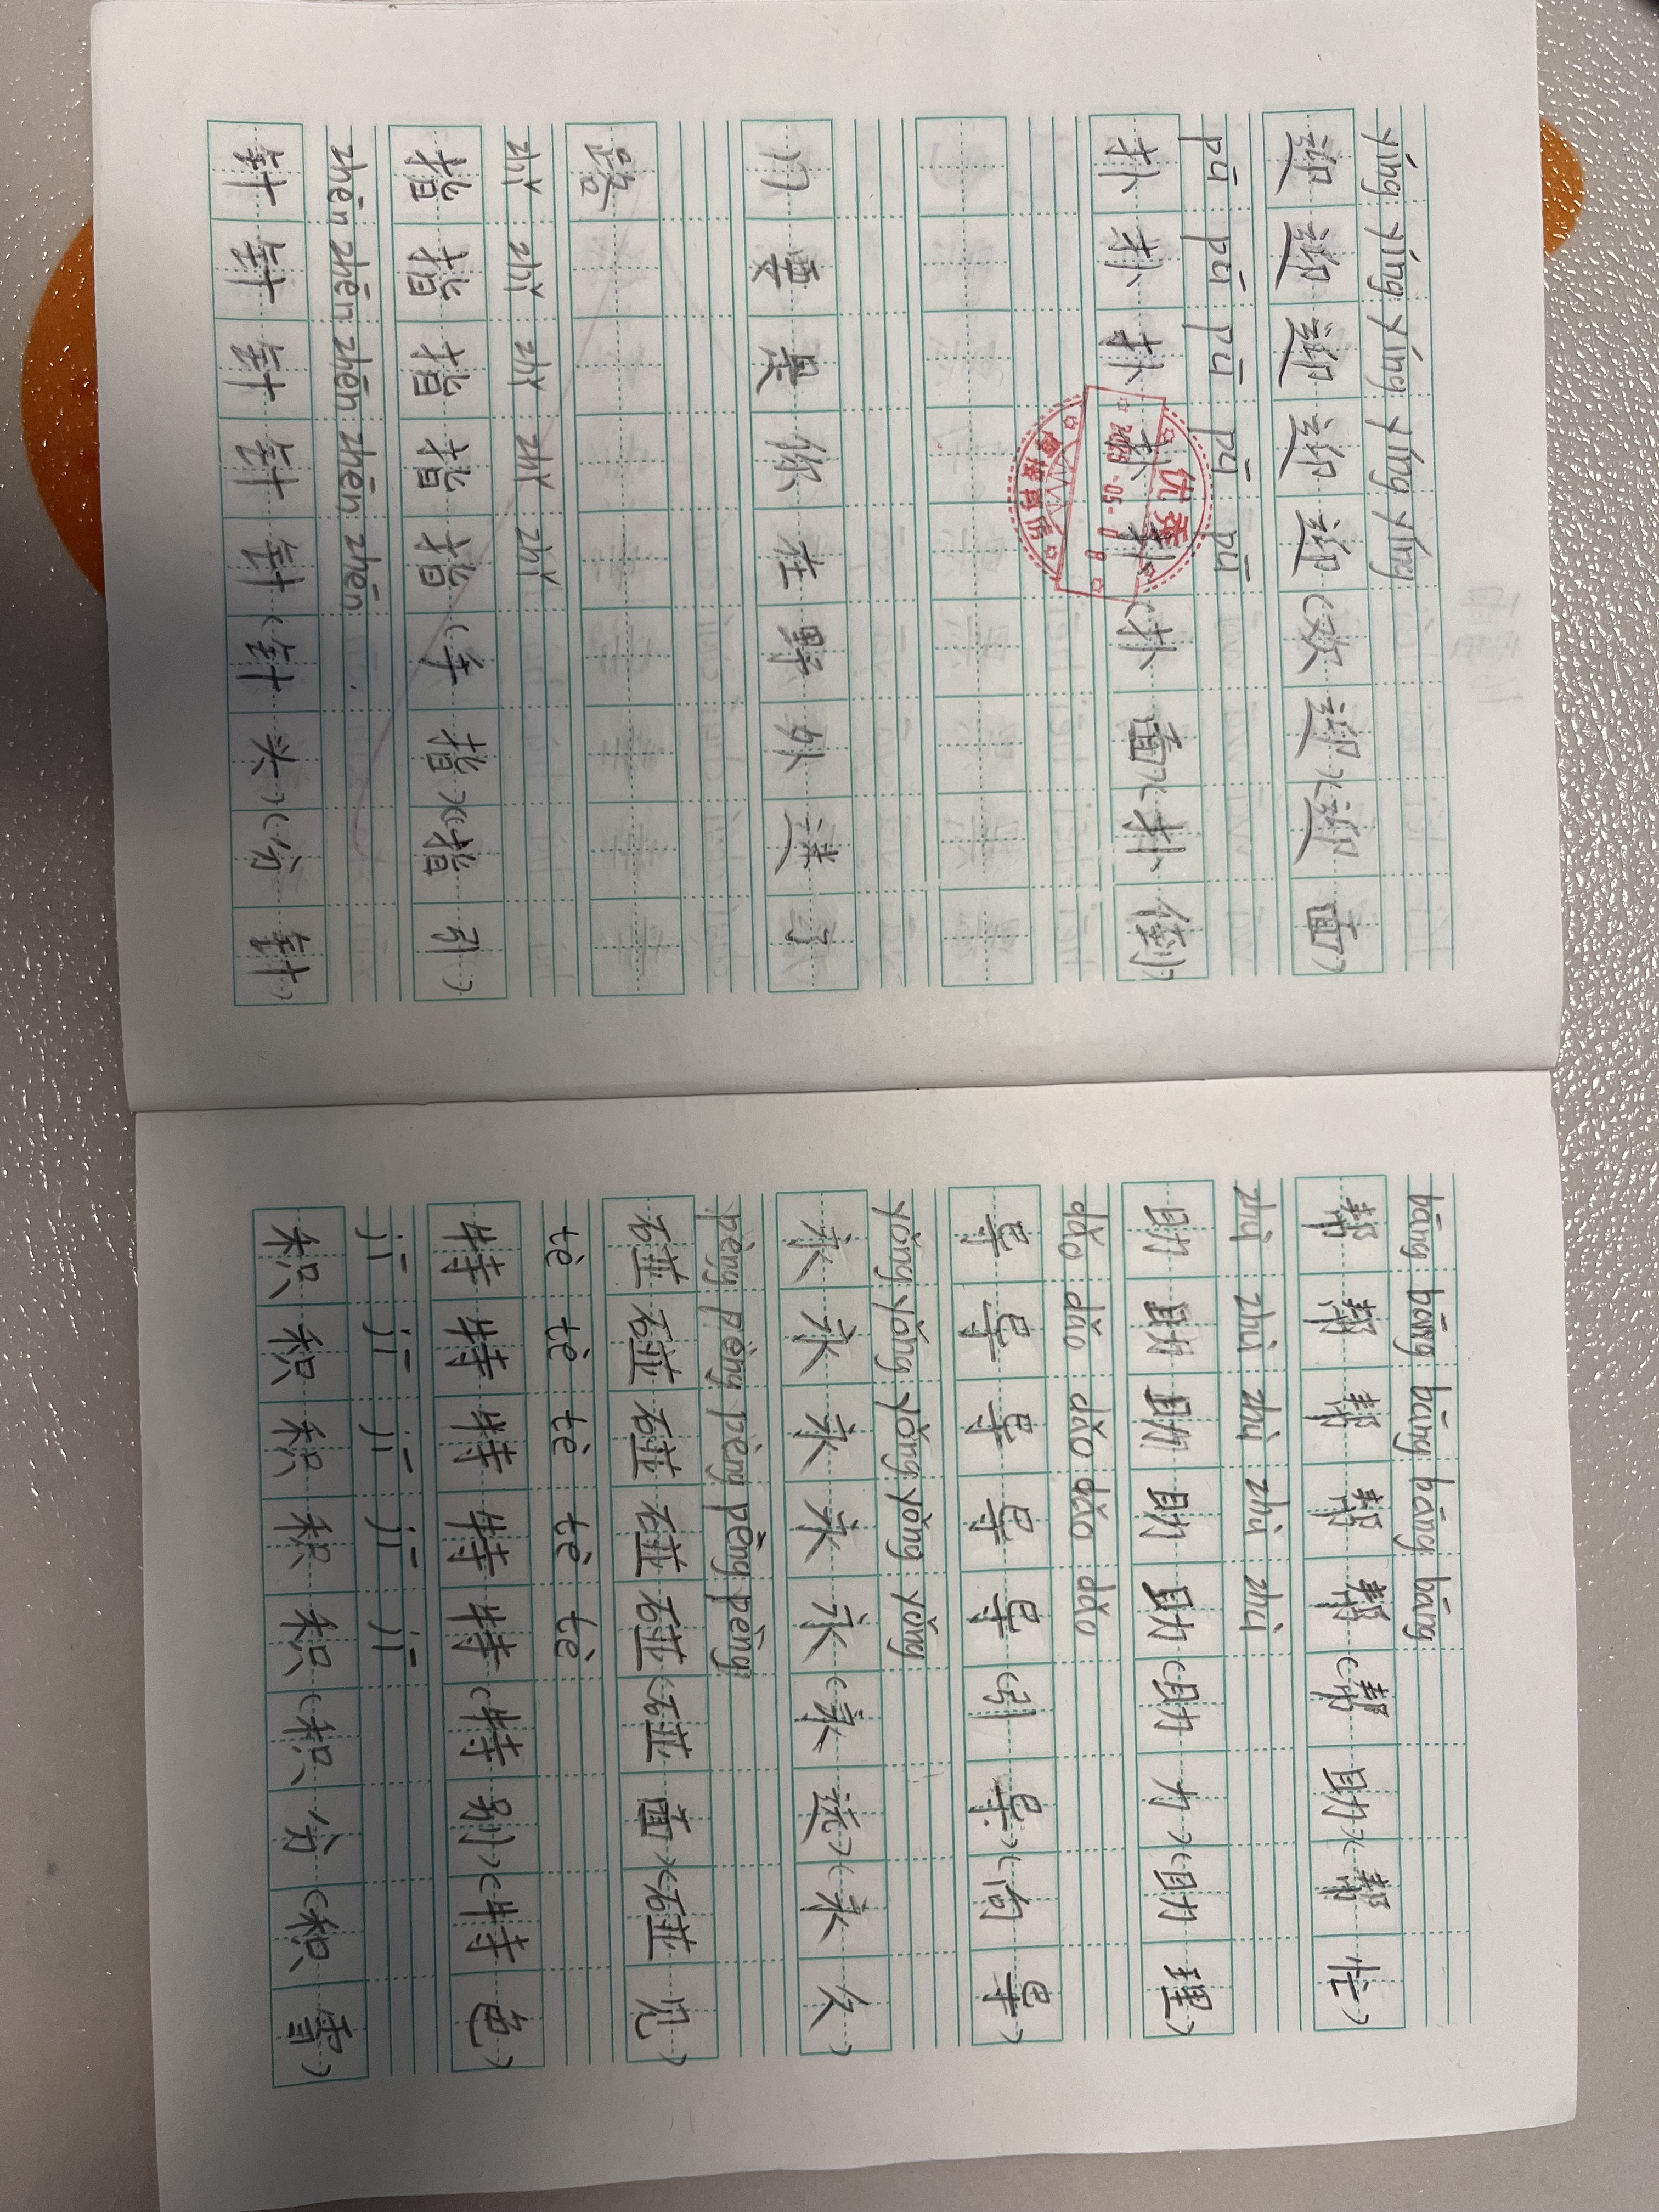 yíng yíng yíng yíng yíng
迎迎迎迎迎(欢迎)(迎面)
pū pū pū pū pū
扑扑扑扑扑(扑面)(扑倒)
优秀
要是你在野外迷了
路
zhǐ zhǐ zhǐ zhǐ zhǐ
指指指指指(手指)(指引)
zhēn zhēn zhēn zhēn zhēn
针针针针针(针头)(分针)
bāng bāng bāng bāng bāng
帮帮帮帮帮(帮助)(帮忙)
zhù zhù zhù zhù zhù
助助助助助(助力)(助理)
dǎo dǎo dǎo dǎo dǎo
导导导导导(引导)(向导)
yǒng yǒng yǒng yǒng yǒng
永永永永永(永远)(永久)
pèng pèng pèng pèng pèng
碰碰碰碰碰(碰面)(碰见)
tè tè tè tè tè
特特特特特(特别)(特色)
jī jī jī jī jī
积积积积积(积分(积雪)